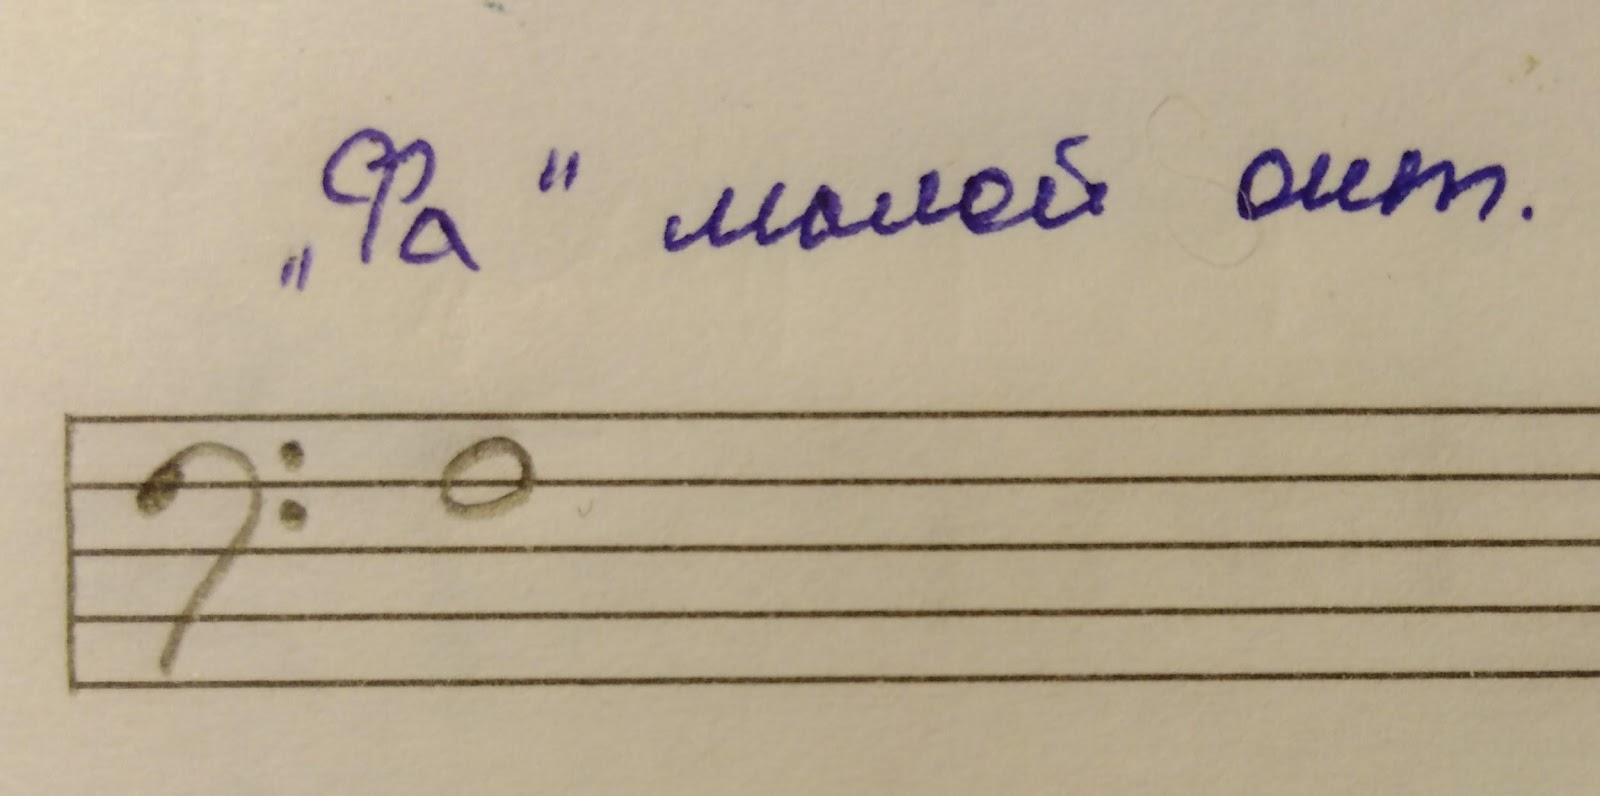 „Фа" малой окт.